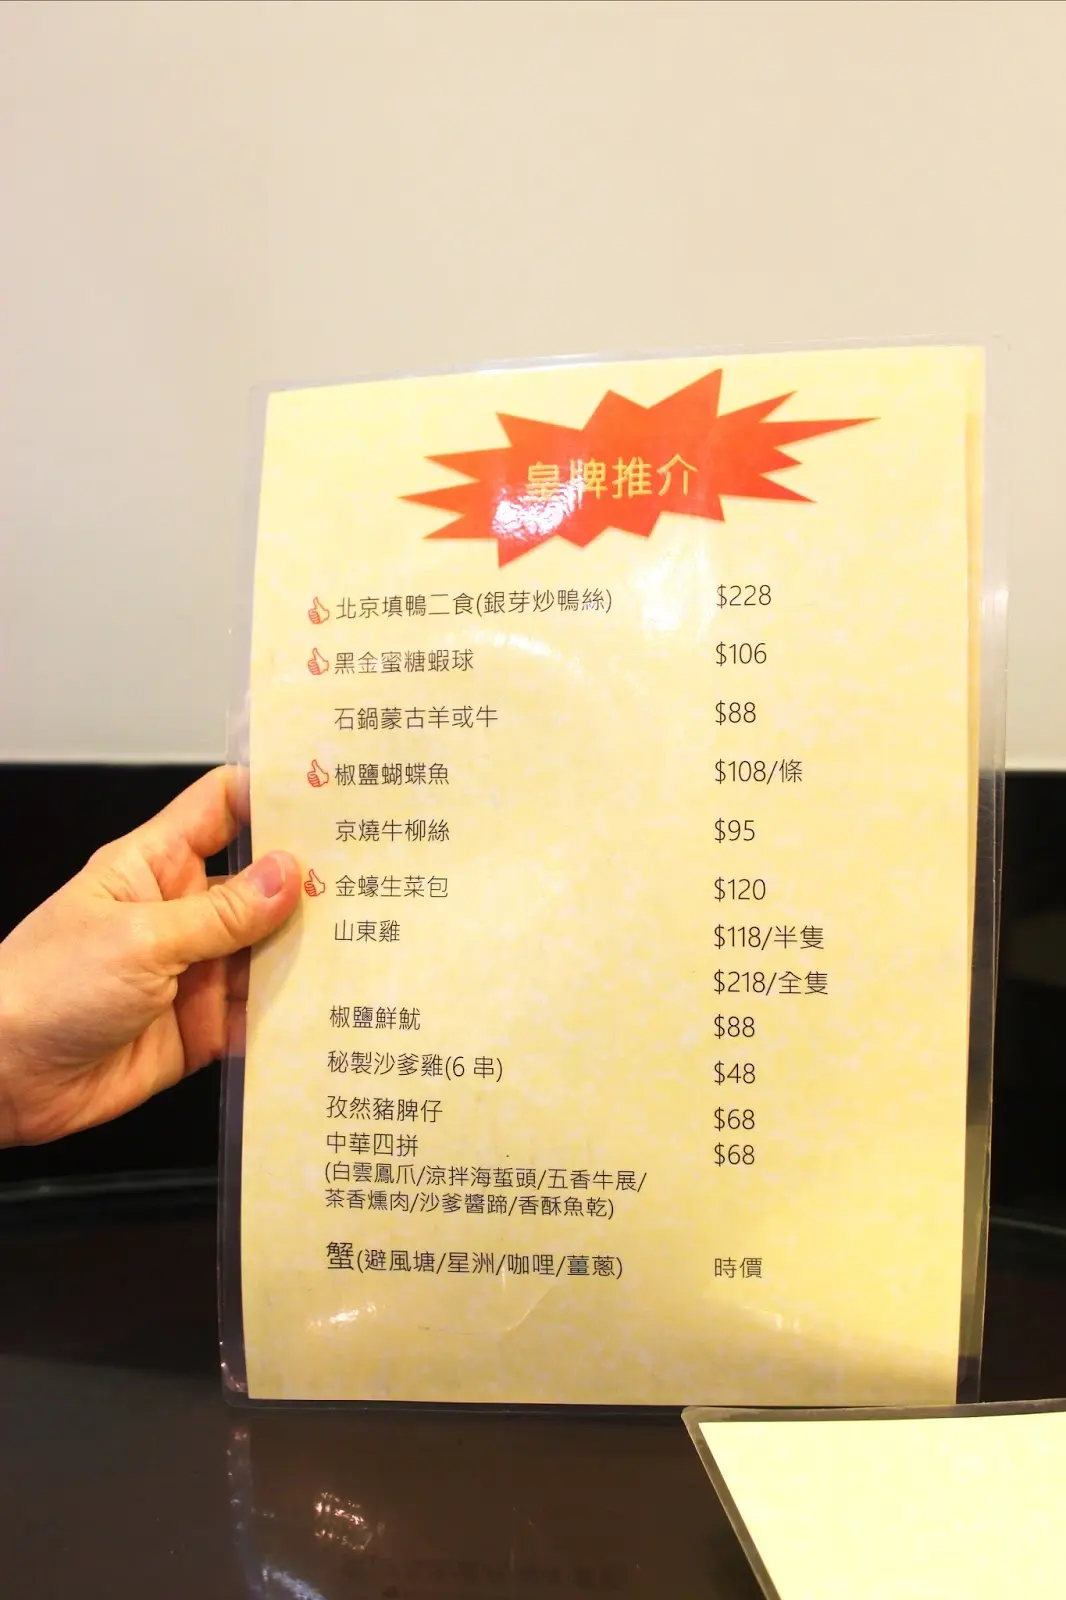 皇牌推介
北京填鴨二食(銀芽炒鴨絲) $228
黑金蜜糖蝦球 $106
石鍋蒙古羊或牛 $88
椒鹽蝴蝶魚 $108/條
京燒牛柳絲 $95
金蠔生菜包 $120
山東雞 $118/半隻
$218/全隻
椒鹽鮮魷 $88
秘製沙爹雞(6 串) $48
孜然豬脾仔 $68
中華四拼 $68
(白雲鳳爪/涼拌海蜇頭/五香牛展/
茶香燻肉/沙爹醬蹄/香酥魚乾)
蟹(避風塘/星洲/咖哩/薑蔥) 時價